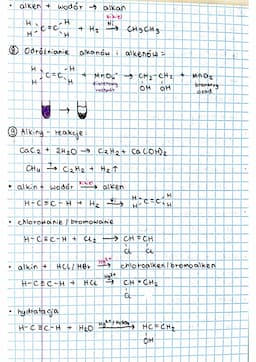 • alken + wodór → alkan
H H C=C H H + H₂ kat. Ni → CH₃CH₃
⑧ Odróżnianie alkanów i alkenów:
H H C=C H H + MnO₄⁻ → CH₂-CH₂ + MnO₂
OH OH brunatny osad
⑨ Alkiny - reakcje:
CaC₂ + 2H₂O → C₂H₂ + Ca(OH)₂
CH₄ → C₂H₂ + H₂↑
• alkin + wodór kat. → alken
H-C≡C-H + H₂ → H H C=C H H
• chlorowanie / bromowanie
H-C≡C-H + Cl₂ → CH=CH
Cl Cl
• alkin + HCl/HBr Hg²⁺ → chloroalken/bromoalken
H-C≡C-H + HCl Hg²⁺ → CH=CH₂
Cl
• hydratacja
H-C≡C-H + H₂O → HC=CH₂
OH